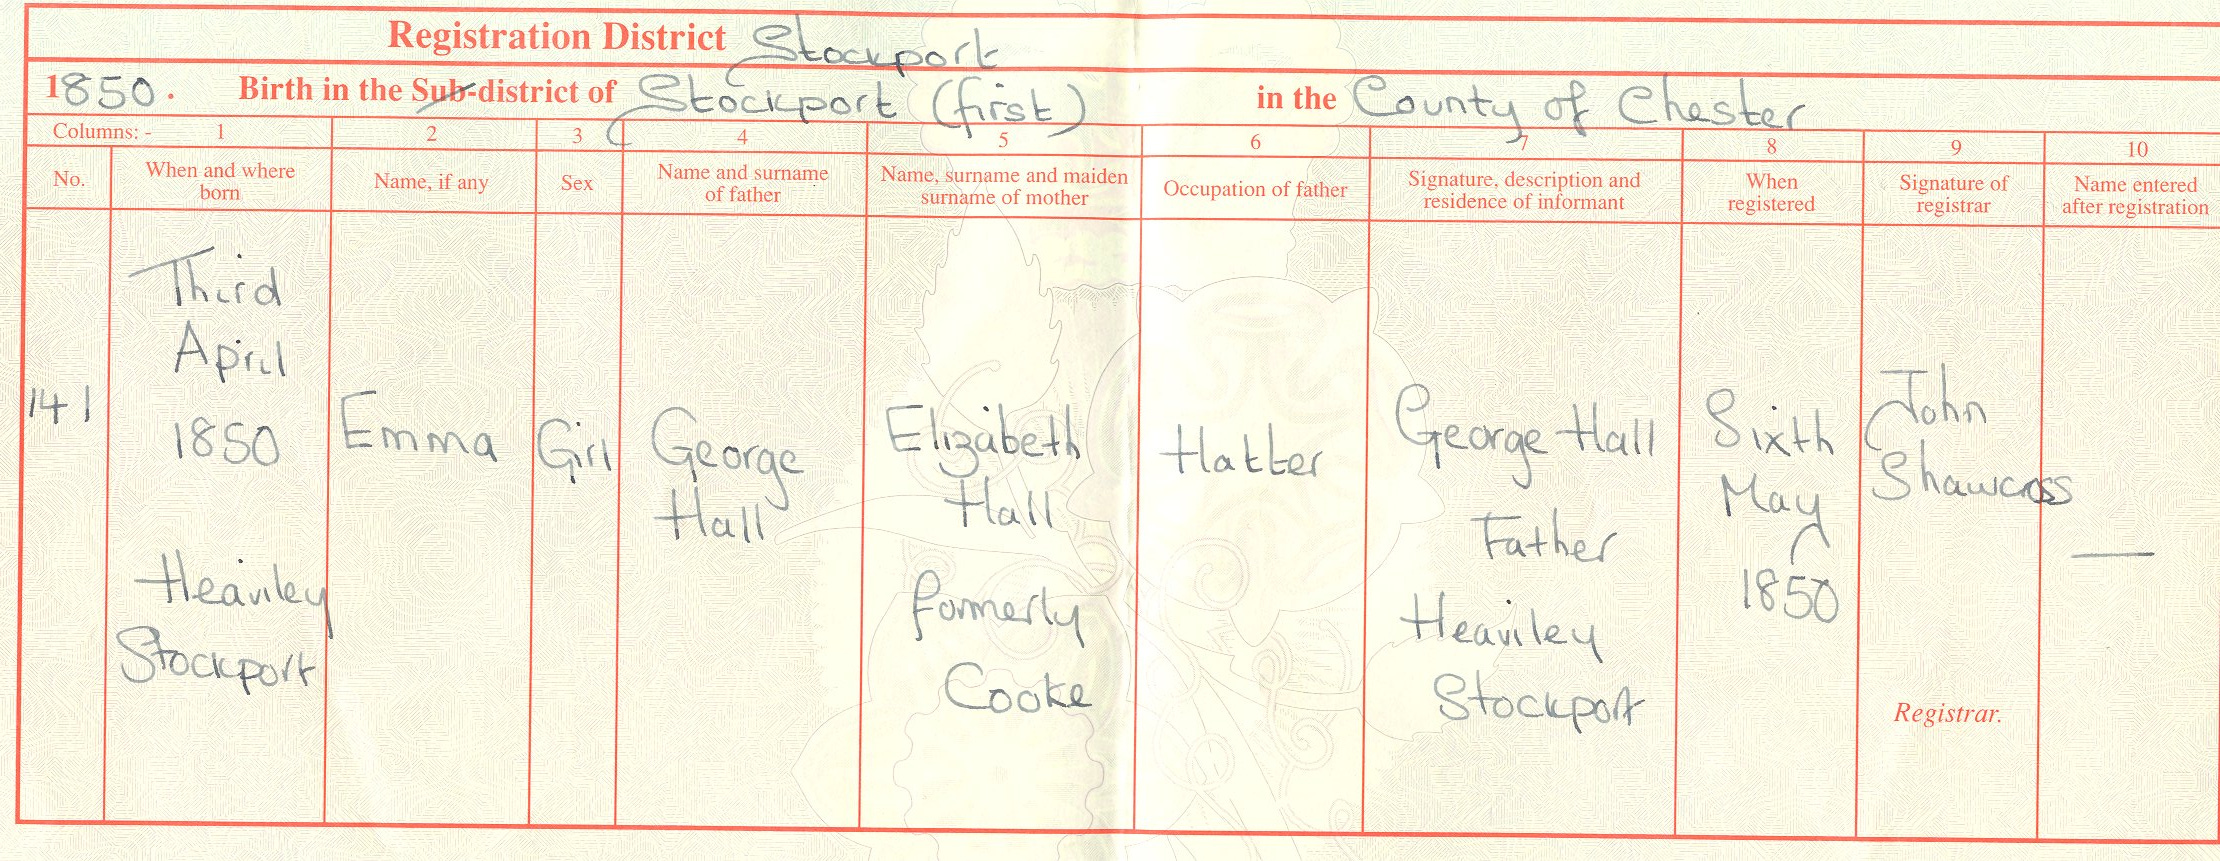 Registration District Stockport
1850. Birth in the Sub-district of Stockport (first) in the County of Chester
Columns: - 1 2 3 4 5 6 7 8 9 10
No.
When and where
born
Name, if any
Sex
Name and surname
of father
Name, surname and maiden
surname of mother
Occupation of father
Signature, description and
residence of informant
When
registered
Signature of
registrar
Name entered
after registration
141
Third
April
1850
Heaviley
Stockport
Emma
Girl
George
Hall
Elizabeth
Hall
formerly
Cooke
Hatter
George Hall
Father
Heaviley
Stockport
Sixth
May
1850
John
Shawcross
Registrar.
—